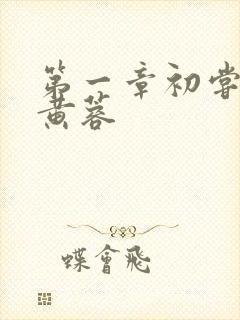 第一章初尝
黄蓉
蝶會飛